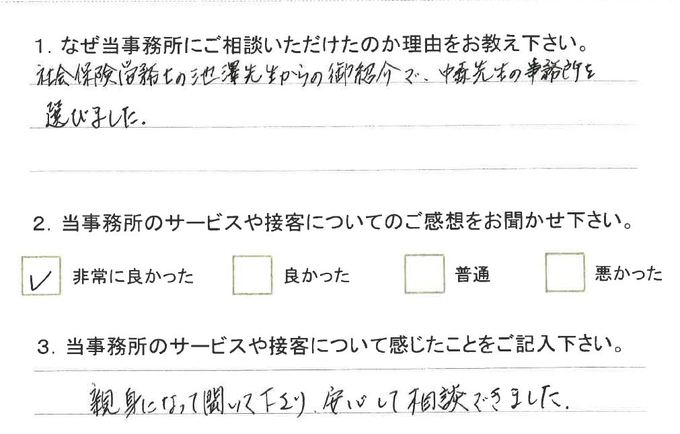 1. なぜ当事務所にご相談いただけたのか理由をお教え下さい。
社会保険労務士の池澤先生からの御紹介で、中森先生の事務所を
選びました.
2. 当事務所のサービスや接客についてのご感想をお聞かせ下さい。
✓ 非常に良かった 良かった 普通 悪かった
3. 当事務所のサービスや接客について感じたことをご記入下さい。
親身になって聞いて下さり、安心して相談できました.